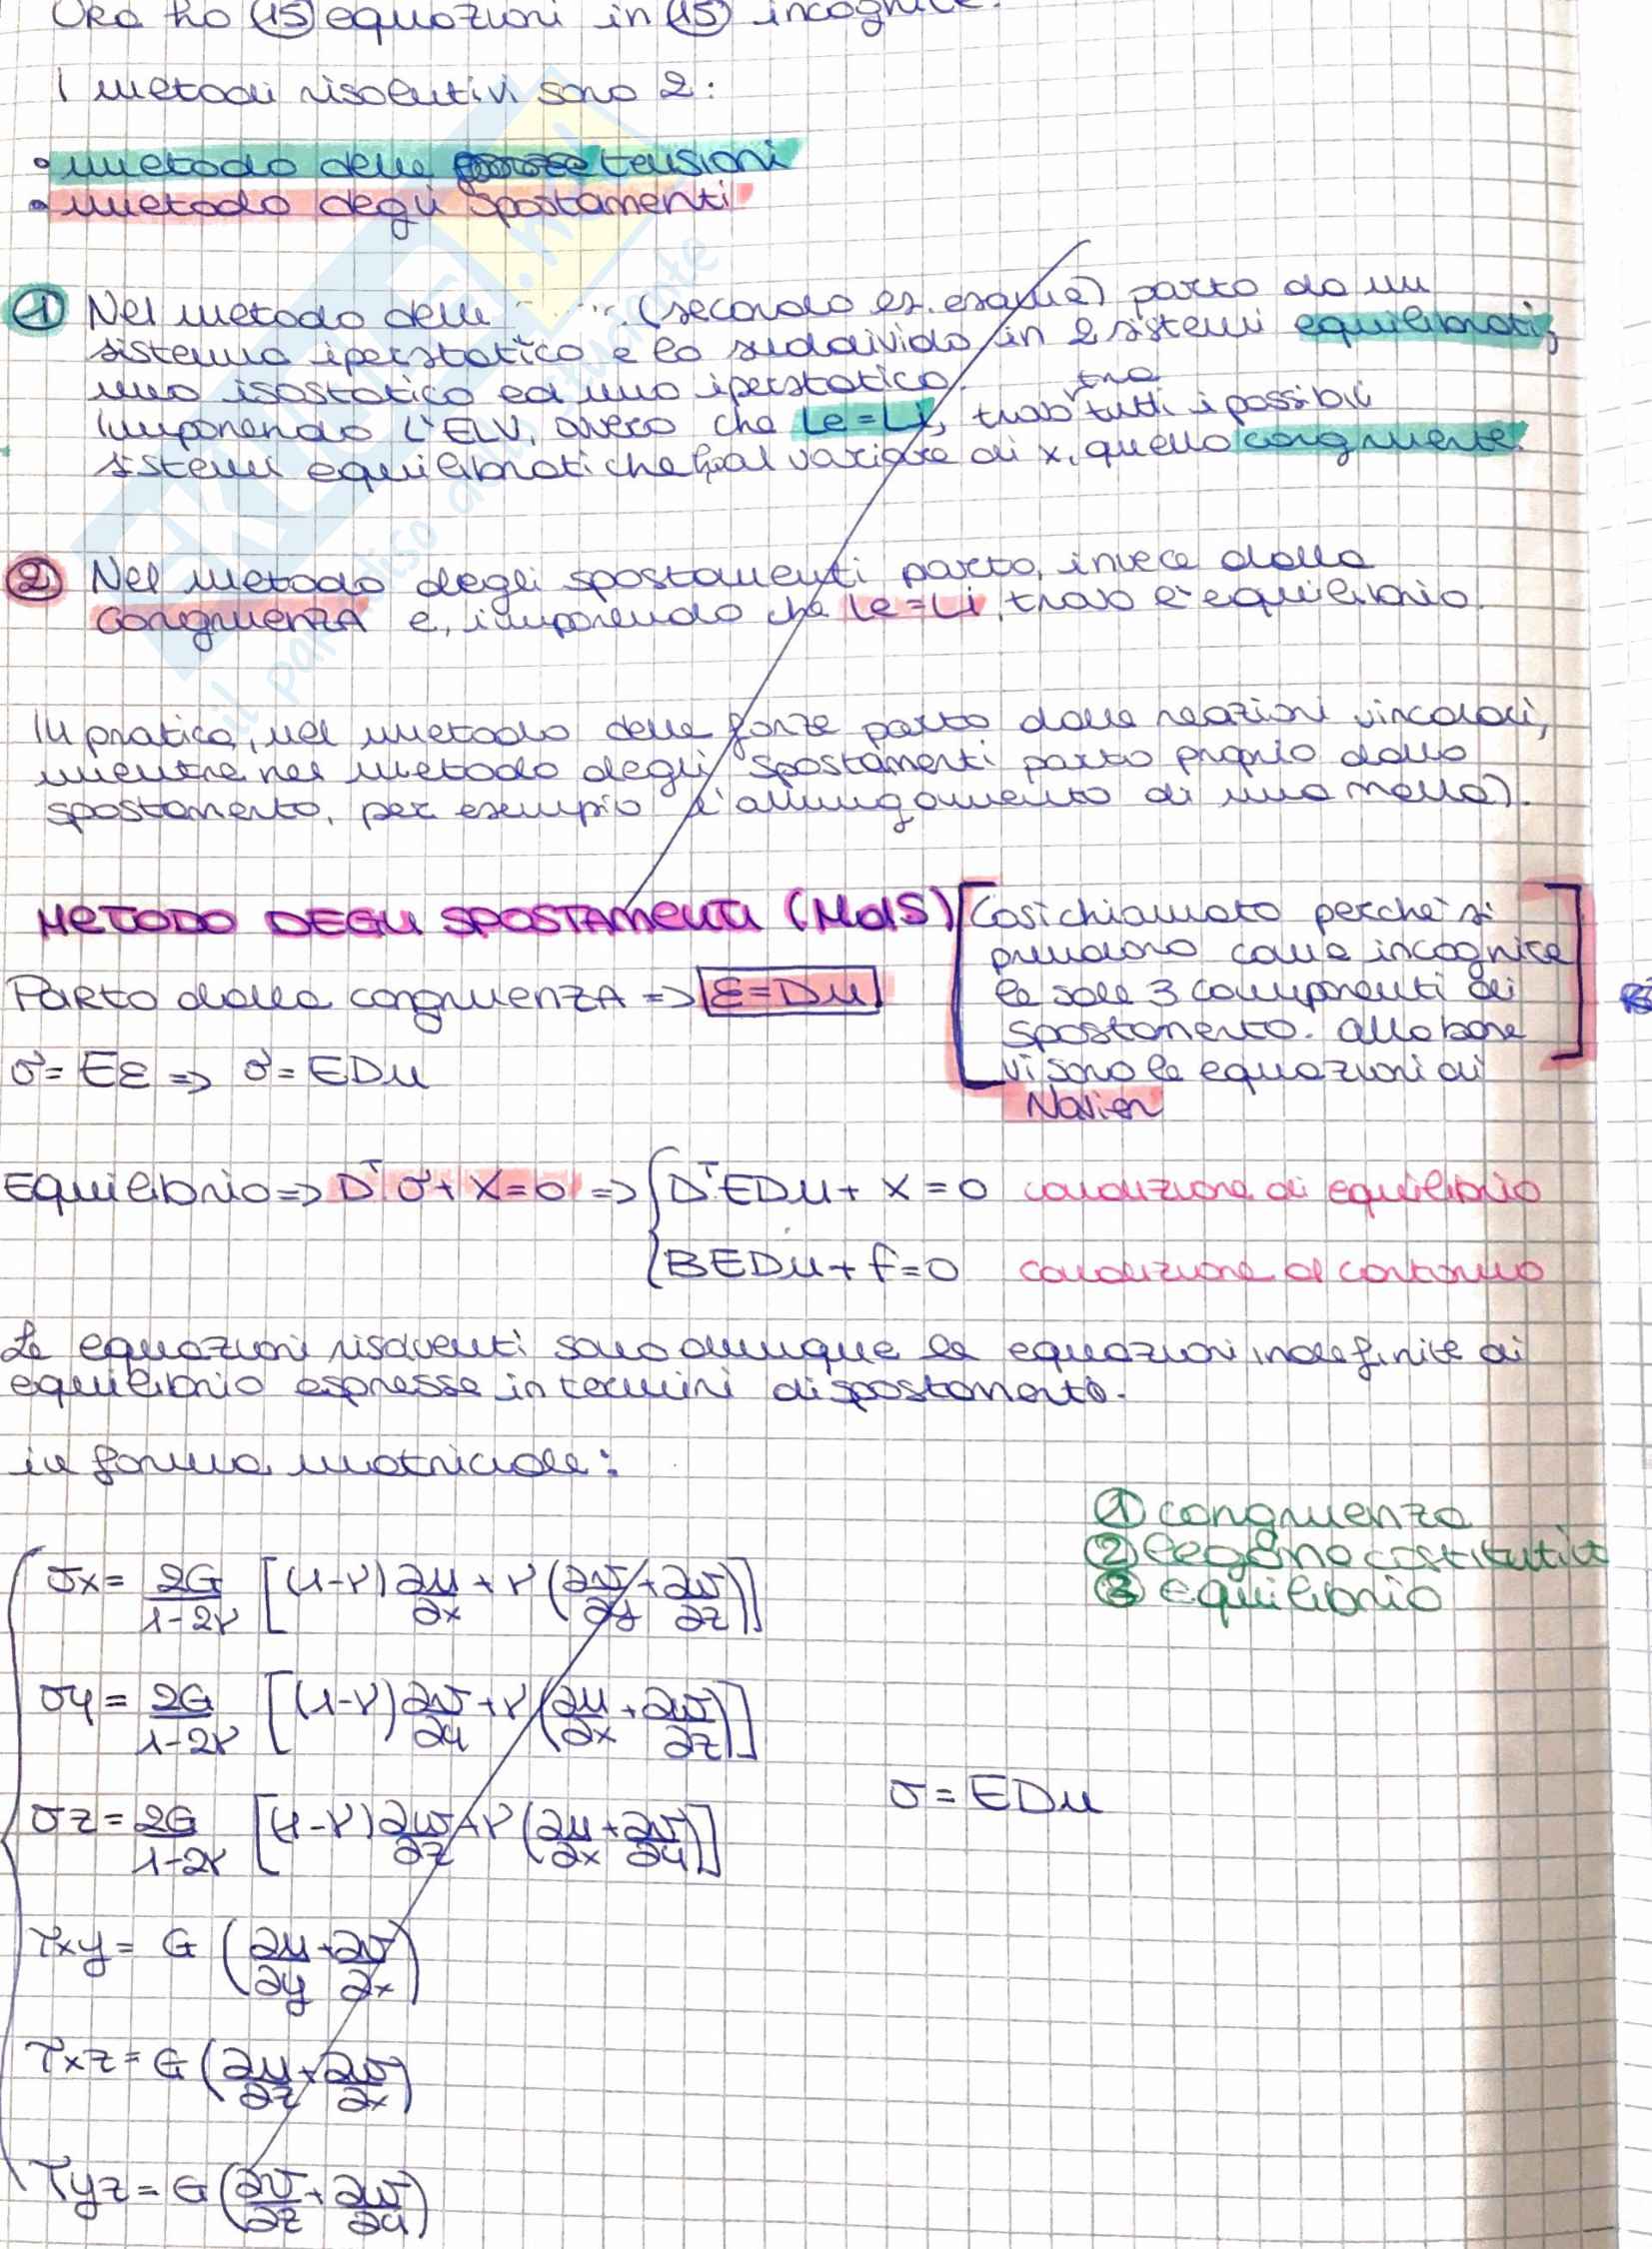 Ora ho 15 equazioni in 15 incognite.
I metodi risolutivi sono 2:
• metodo delle tensioni
• metodo degli spostamenti
① Nel metodo delle (secondo es. esame) parto da un
sistema iperstatico e lo suddivido in 2 sistemi equilibrati,
uno isostatico ed uno iperstatico.
Imponendo L'ELV, ovvero che Le=Li, trovo tra tutti i possibili
sistemi equilibrati che al variare di x, quello congruente.
② Nel metodo degli spostamenti parto, invece dalla
congruenza e, imponendo che Le=Li, trovo l'equilibrio.
In pratica, nel metodo delle forze parto dalle reazioni vincolari,
mentre nel metodo degli spostamenti parto proprio dallo
spostamento, per esempio l'allungamento di una molla).
METODO DEGLI SPOSTAMENTI (MdS)
[Così chiamato perché si
prendono come incognite
le sole 3 componenti di
spostamento. alla base
vi sono le equazioni di
Navier]
Parto dalla congruenza => ε=Du
σ=Eε => σ=EDu
Equilibrio => Dᵀσ+X=0 => { DᵀEDu+X=0 condizione di equilibrio
BEDu+f=0 condizione al contorno
Le equazioni risolventi sono dunque le equazioni indefinite di
equilibrio espresse in termini di spostamento.
in forma matriciale:
① congruenza
② legame costitutivo
③ equilibrio
σx = 2G/(1-2ν) [(1-ν) ∂u/∂x + ν (∂v/∂y + ∂w/∂z)]
σy = 2G/(1-2ν) [(1-ν) ∂v/∂y + ν (∂u/∂x + ∂w/∂z)]
σ = EDu
σz = 2G/(1-2ν) [(1-ν) ∂w/∂z + ν (∂u/∂x + ∂v/∂y)]
τxy = G (∂u/∂y + ∂v/∂x)
τxz = G (∂u/∂z + ∂w/∂x)
τyz = G (∂v/∂z + ∂w/∂y)